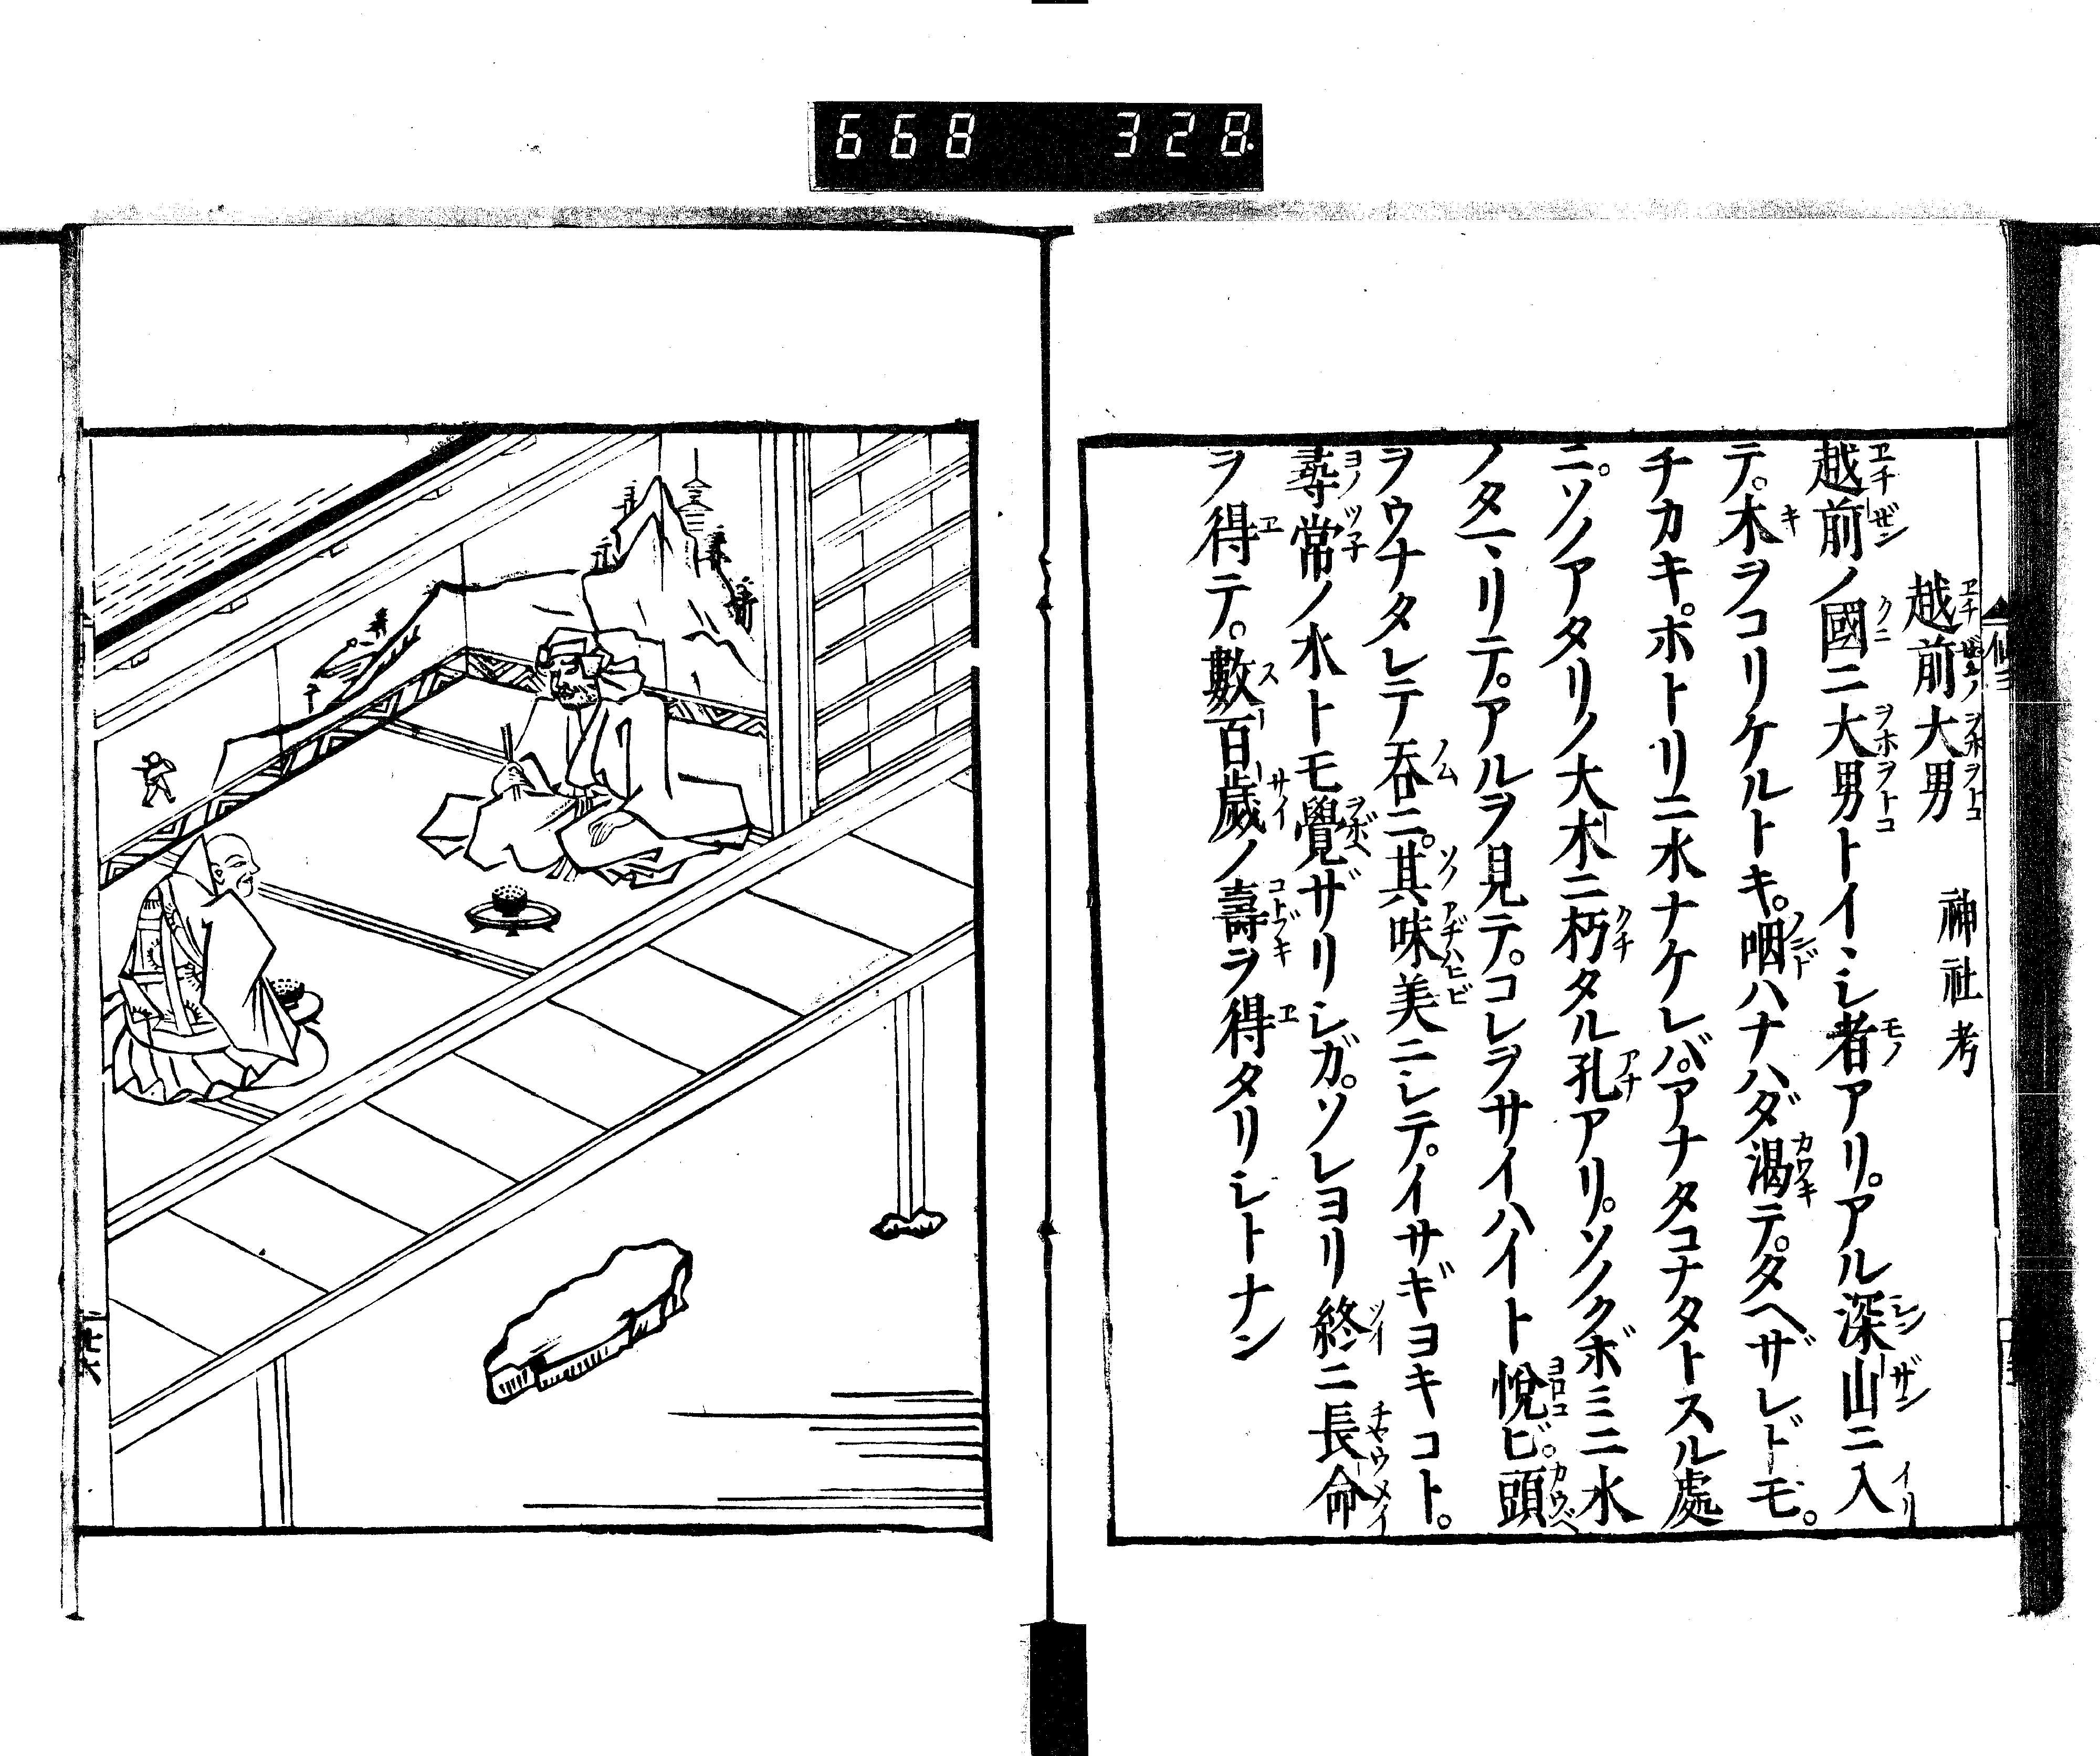 668 328
越前大男 神社考
越前ノ國ニ大男トイヽシ者アリ。アル深山ニ入
テ。木ヲコリケルトキ。咽ハナハダ渇テ。タヘザレドモ。
チカキホトリニ水ナケレバ。アナタコナタトスル處
ニ。ソノアタリノ大木ニ朽タル孔アリ。ソノクボミニ水
ノタヽリテ。アルヲ見テ。コレヲサイハイト悅ビ。頭
ヲウナタレテ吞ニ。其味美ニシテ。イサギヨキコト。
尋常ノ水トモ覺ザリシガ。ソレヨリ終ニ長命
ヲ得テ。數百歲ノ壽ヲ得タリシトナン